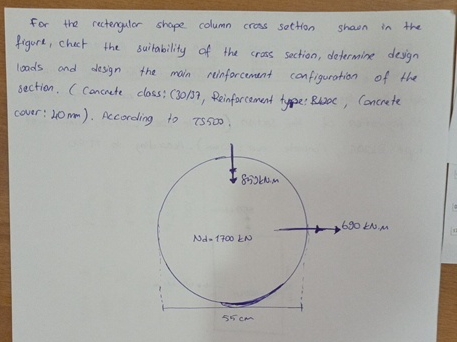 For the rectengular shape column cross section shown in the
figure, check the suitability of the cross section, determine design
loads and design the main reinforcement configuration of the
section. ( Concrete class: C30/37, Reinforcement type: B420C, Concrete
cover: 40 mm). According to TS500.
859 kN.m
690 kN.m
Nd= 1700 kN
55 cm